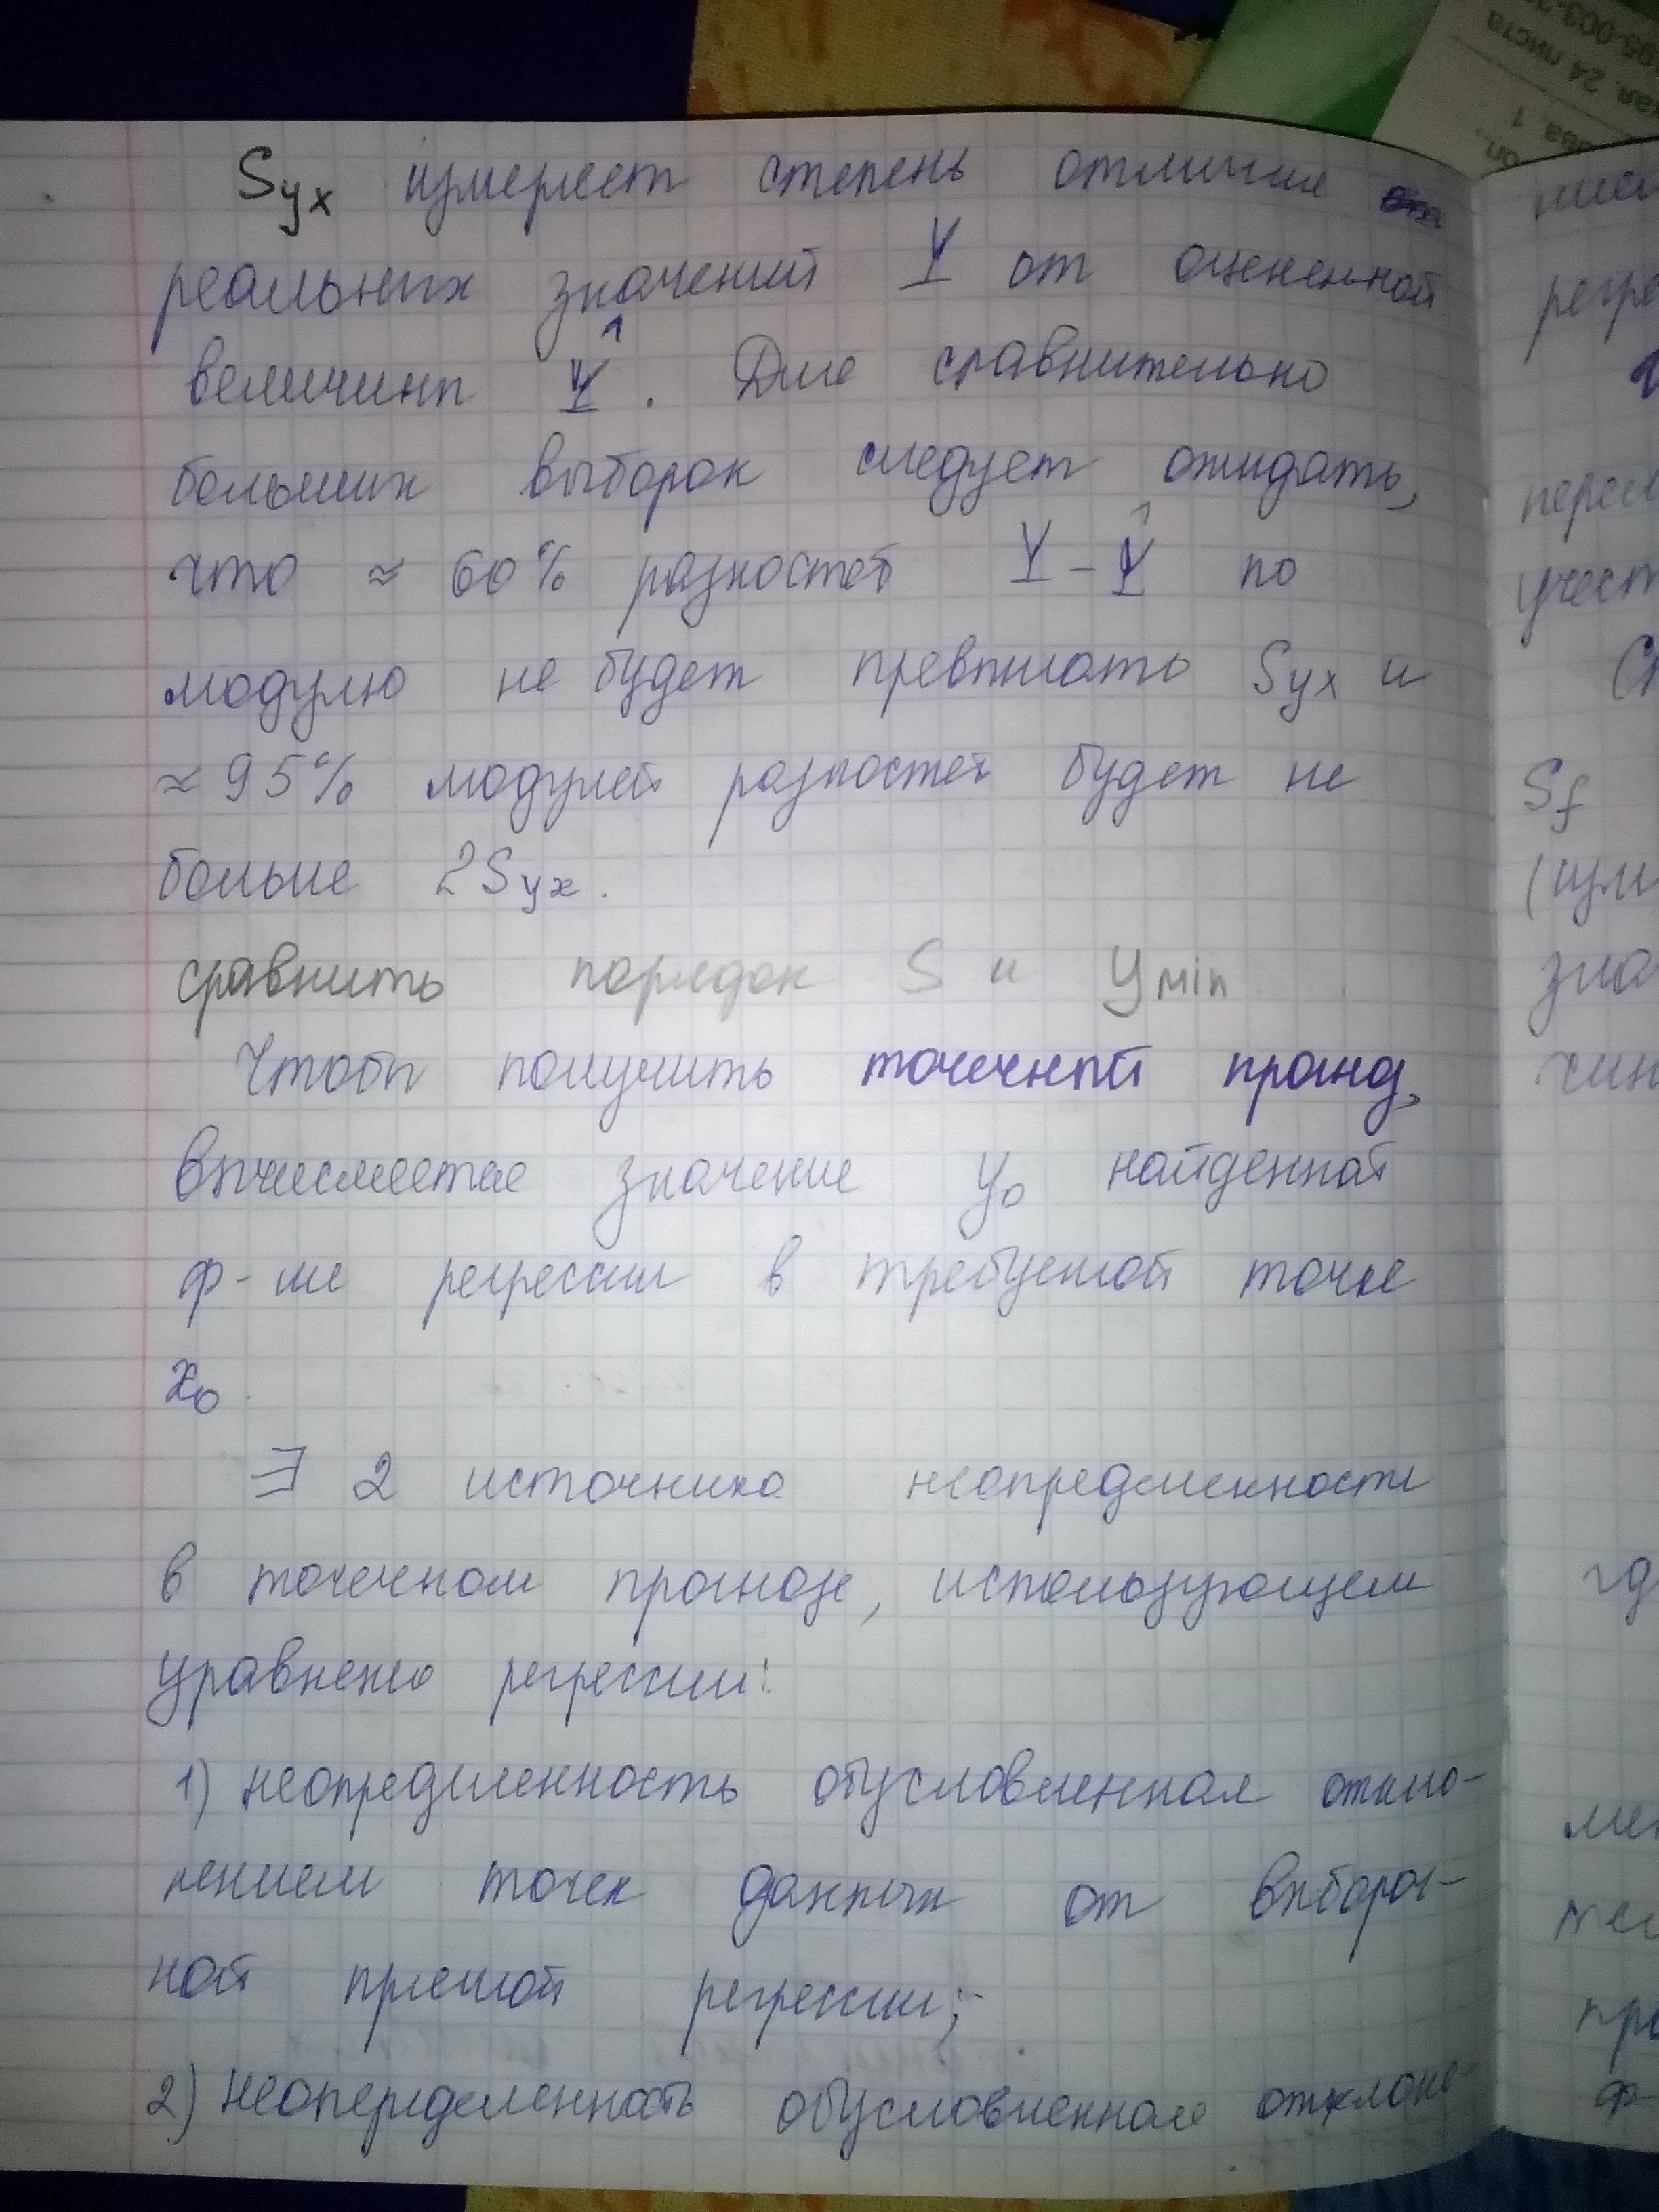 Syx измеряет степень отличия
реальных значений Y от оцененной
величины Ŷ. Для сравнительно
больших выборок следует ожидать,
что ≈ 60% разностей Y - Ŷ по
модулю не будет превышать Syx и
≈ 95% модулей разностей будет не
больше 2Syx.
сравнить порядок S и Ymin
Чтобы получить точечный прогноз,
вычисляется значение y₀ найденной
ф-ии регрессии в требуемой точке
x₀
∃ 2 источника неопределенности
в точечном прогнозе, использующем
уравнение регрессии:
1) неопределенность обусловленная откло-
нением точек данных от выбороч-
ной прямой регрессии;
2) неопеределенность обусловленная отклоне-
24 листа
Sf